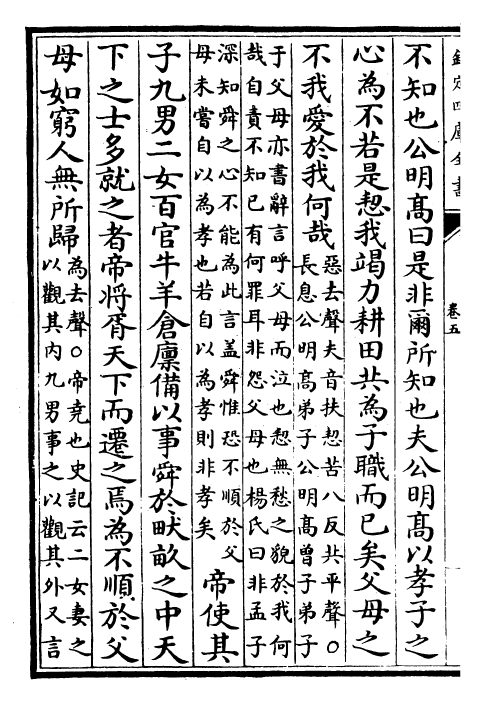 欽定四庫全書
卷五
不知也公明髙曰是非爾所知也夫公明髙以孝子之
心為不若是恝我竭力耕田共為子職而已矣父母之
不我愛於我何哉
惡去聲夫音扶恝苦八反共平聲○
長息公明髙弟子公明髙曾子弟子
于父母亦書辭言呼父母而泣也恝無愁之貌於我何
哉自責不知已有何罪耳非怨父母也楊氏曰非孟子
深知舜之心不能為此言盖舜惟恐不順於父
母未嘗自以為孝也若自以為孝則非孝矣
帝使其
子九男二女百官牛羊倉廪備以事舜於畎畝之中天
下之士多就之者帝將胥天下而遷之焉為不順於父
母如窮人無所歸
為去聲○帝堯也史記云二女妻之
以觀其内九男事之以觀其外又言